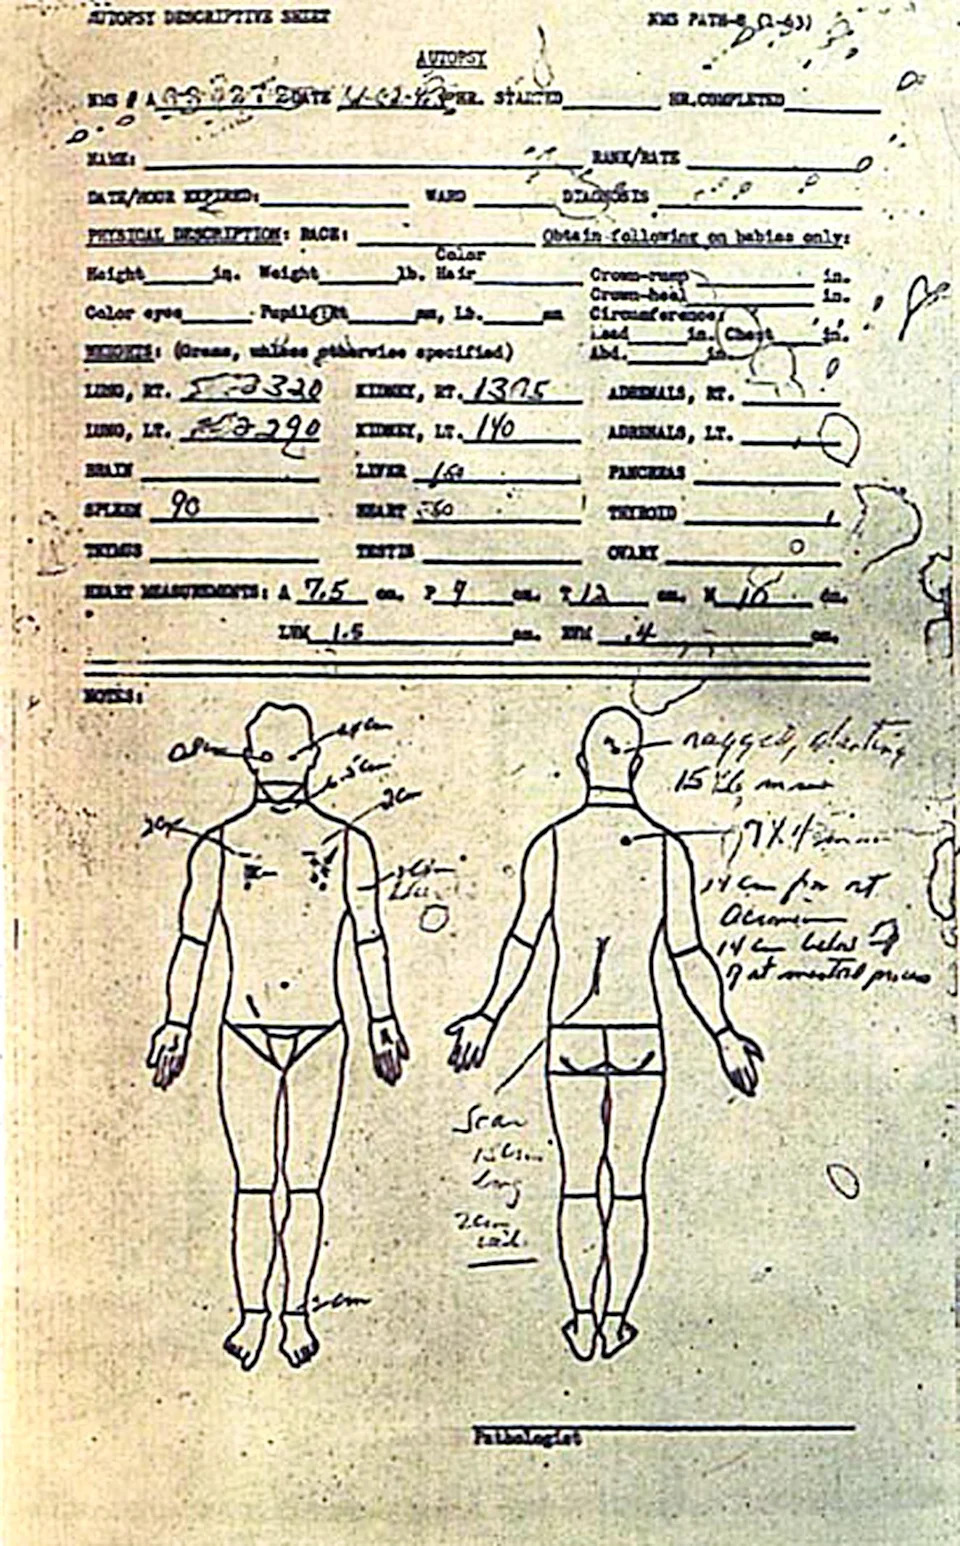 AUTOPSY DESCRIPTIVE SHEET NMS PATH-8 (1-63)
AUTOPSY
NMS # A DATE HR. STARTED HR. COMPLETED
NAME: RANK/RATE
DATE/HOUR EXPIRED: WARD DIAGNOSIS
PHYSICAL DESCRIPTION: RACE: Obtain following on babies only:
Color
Height in. Weight lb. Hair Crown-rump in.
Crown-heel in.
Color eyes Pupils:Rt mm, Lt. mm Circumference:
Head in. Chest in.
WEIGHTS: (Grams, unless otherwise specified) Abd. in.
LUNG, RT. 320 KIDNEY, RT. ADRENALS, RT.
LUNG, LT. 290 KIDNEY, LT. 140 ADRENALS, LT.
BRAIN LIVER PANCREAS
SPLEEN 90 HEART THYROID
THYMUS TESTIS OVARY
HEART MEASUREMENTS: A 7.5 cm. P 9 cm. T 12 cm. M 10 cm.
LVM 1.5 cm. RVM .4 cm.
NOTES:
ragged, slanting
15 x 6 mm
6.5 cm
2 cm
7 x 4 mm
14 cm from rt
acromion
14 cm below
rt mastoid process
Scar
long
2 cm
Pathologist